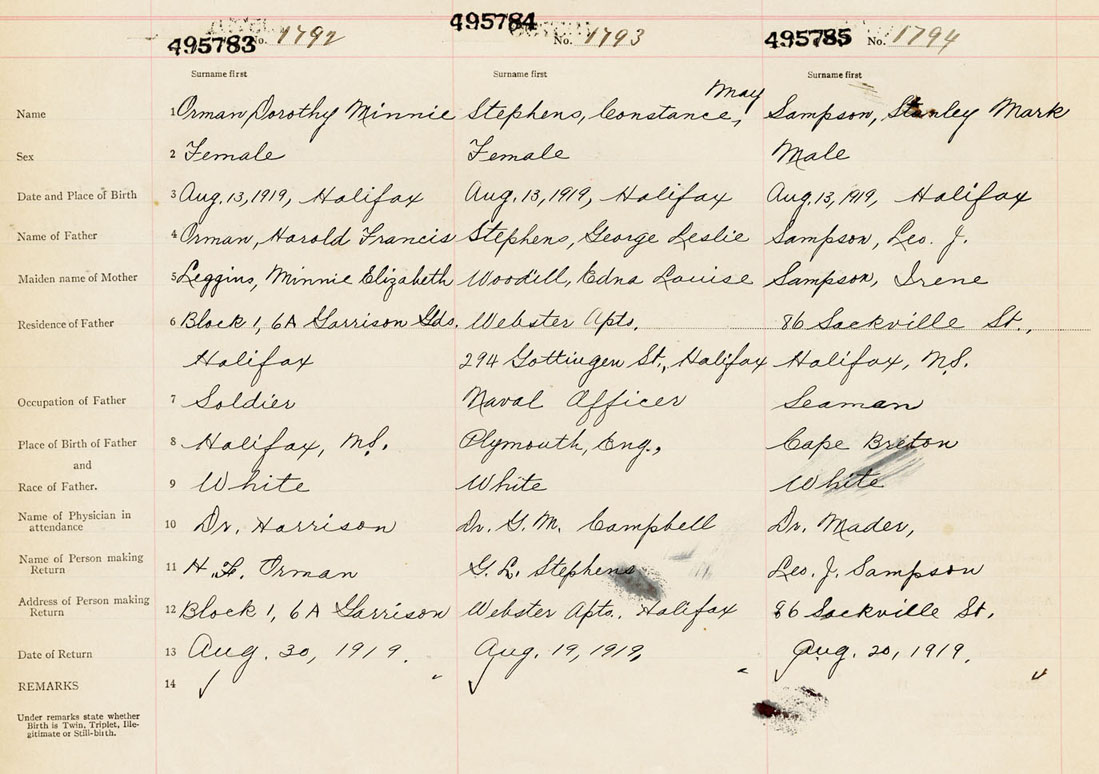 495783 No. 1792 495784 No. 1793 495785 No. 1794
Surname first Surname first Surname first
May
Name 1 Orman, Dorothy Minnie Stephens, Constance, Sampson, Stanley Mark
Sex 2 Female Female Male
Date and Place of Birth 3 Aug. 13, 1919, Halifax Aug. 13, 1919, Halifax Aug. 13, 1919, Halifax
Name of Father 4 Orman, Harold Francis Stephens, George Leslie Sampson, Leo. J.
Maiden name of Mother 5 Leggins, Minnie Elizabeth Woodill, Edna Louise Sampson, Irene
Residence of Father 6 Block 1, 6A Garrison Gds. Webster Apts. 86 Sackville St.,
Halifax 294 Gottingen St., Halifax Halifax, N.S.
Occupation of Father 7 Soldier Naval Officer Seaman
Place of Birth of Father 8 Halifax, N.S. Plymouth, Eng., Cape Breton
and
Race of Father. 9 White White White
Name of Physician in
attendance 10 Dr. Harrison Dr. G. M. Campbell Dr. Mader,
Name of Person making
Return 11 H. F. Orman G. L. Stephens Leo. J. Sampson
Address of Person making
Return 12 Block 1, 6A Garrison Webster Apts. Halifax 86 Sackville St.
Date of Return 13 Aug. 30, 1919. Aug. 19, 1919, Aug. 20, 1919.
REMARKS 14
Under remarks state whether
Birth is Twin, Triplet, Ille-
gitimate or Still-birth.